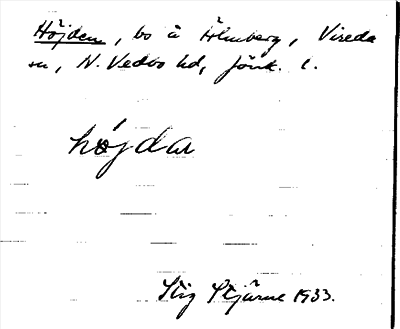 Höjden, bo å Holmberg, Vireda
sn, N. Vedbo hd, Jönk. l.
höjdar
Stig Stjärne 1933.